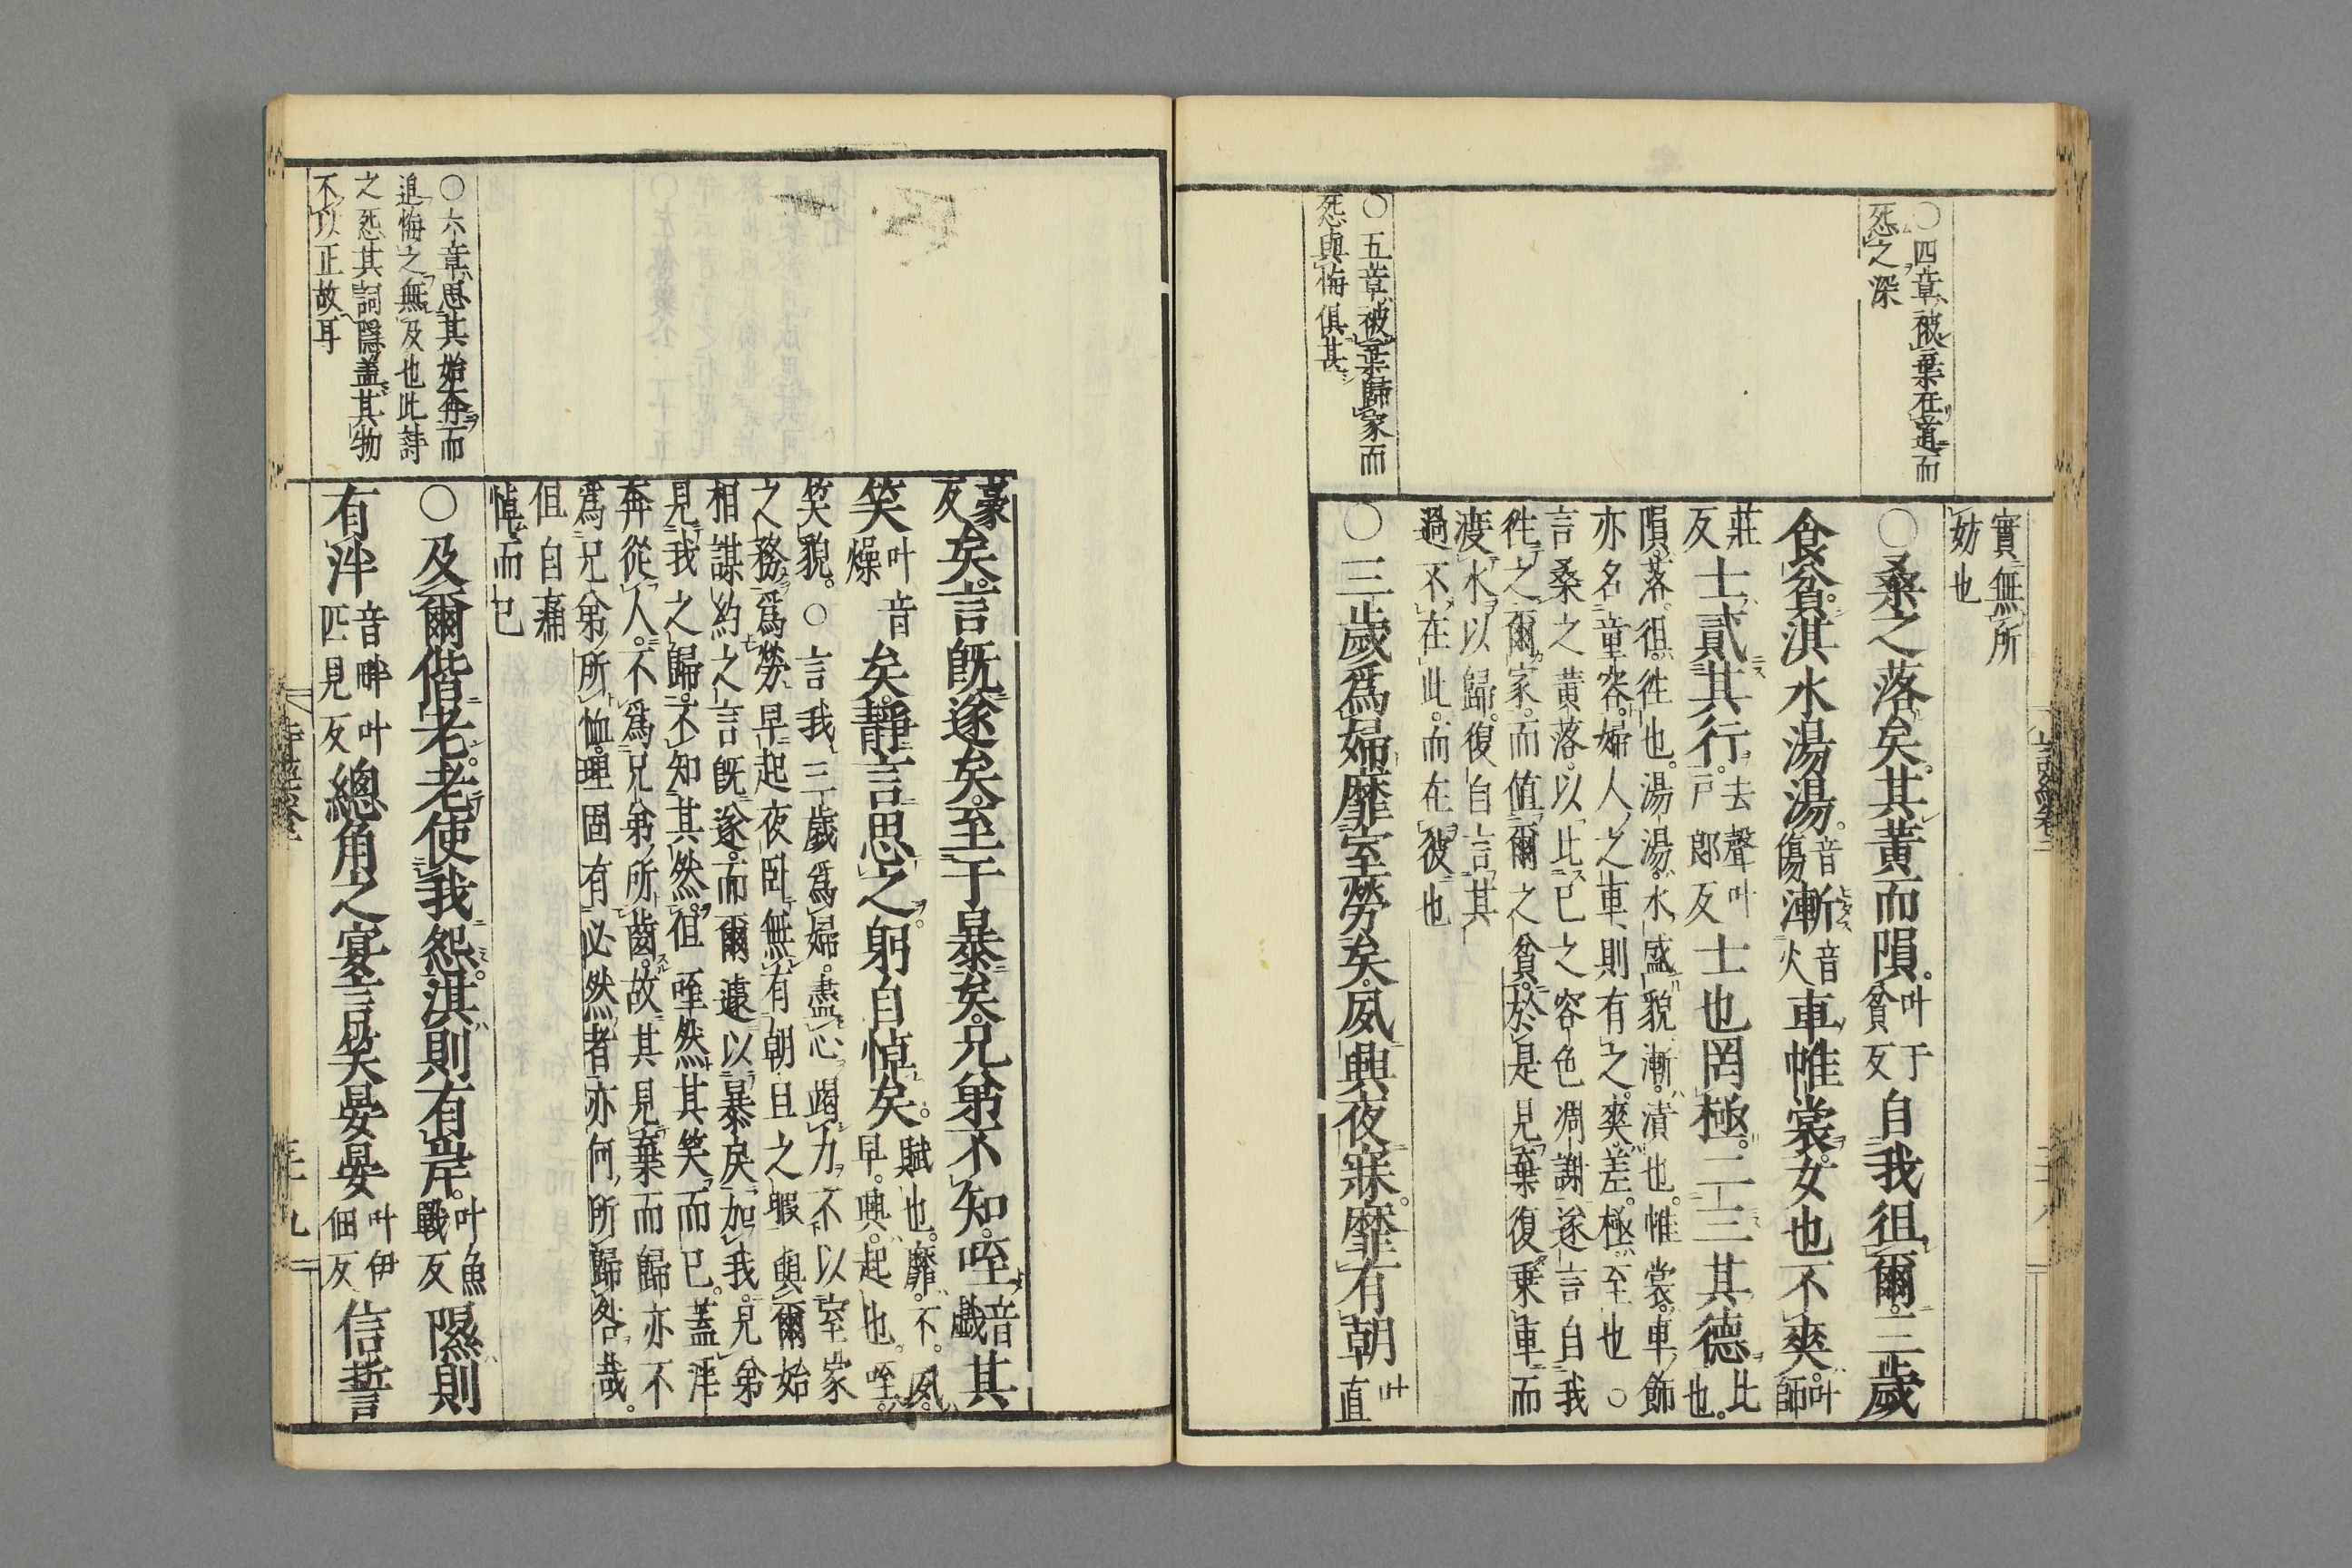 ○四章被棄在道而
怨之深
○五章被棄歸家而
怨與悔俱甚
實無所
妨也
○桑之落矣其黃而隕叶于貧反自我徂爾三歲
食貧淇水湯湯音傷漸音火車帷裳女也不爽叶師
莊反士貳其行去聲叶戶郎反士也罔極二三其德比也
隕落徂徃也湯湯水盛貌漸漬也帷裳車飾
亦名童容婦人之車則有之爽差極至也○
言桑之黃落以比己之容色凋謝遂言自我
徃之爾家而值爾之貧於是見棄復乗車而
渡水以歸復自言其
過不在此而在彼也
○三歲爲婦靡室勞矣夙興夜寐靡有朝叶直
豪反矣言既遂矣至于暴矣兄弟不知咥音戲其
笑叶音燥矣靜言思之躬自悼矣賦也靡不夙早興起也咥
笑貌○言我三歲爲婦盡心竭力不以室家
之務爲勞早起夜臥無有朝旦之暇與爾始
相謀約之言既遂而爾遽以暴戾加我兄弟
見我之歸不知其然但咥然其笑而已蓋淫
奔從人不爲兄弟所齒故其見棄而歸亦不
爲兄弟所恤理固有必然者亦何所歸咎哉
但自痛
悼而已
○六章思其始奔而
追悔之無及也此詩
之怨其詞隱蓋其物
不以正故耳
○及爾偕老老使我怨淇則有岸叶魚戰反隰則
有泮音畔叶匹見反總角之宴言笑晏晏叶伊佃反信誓